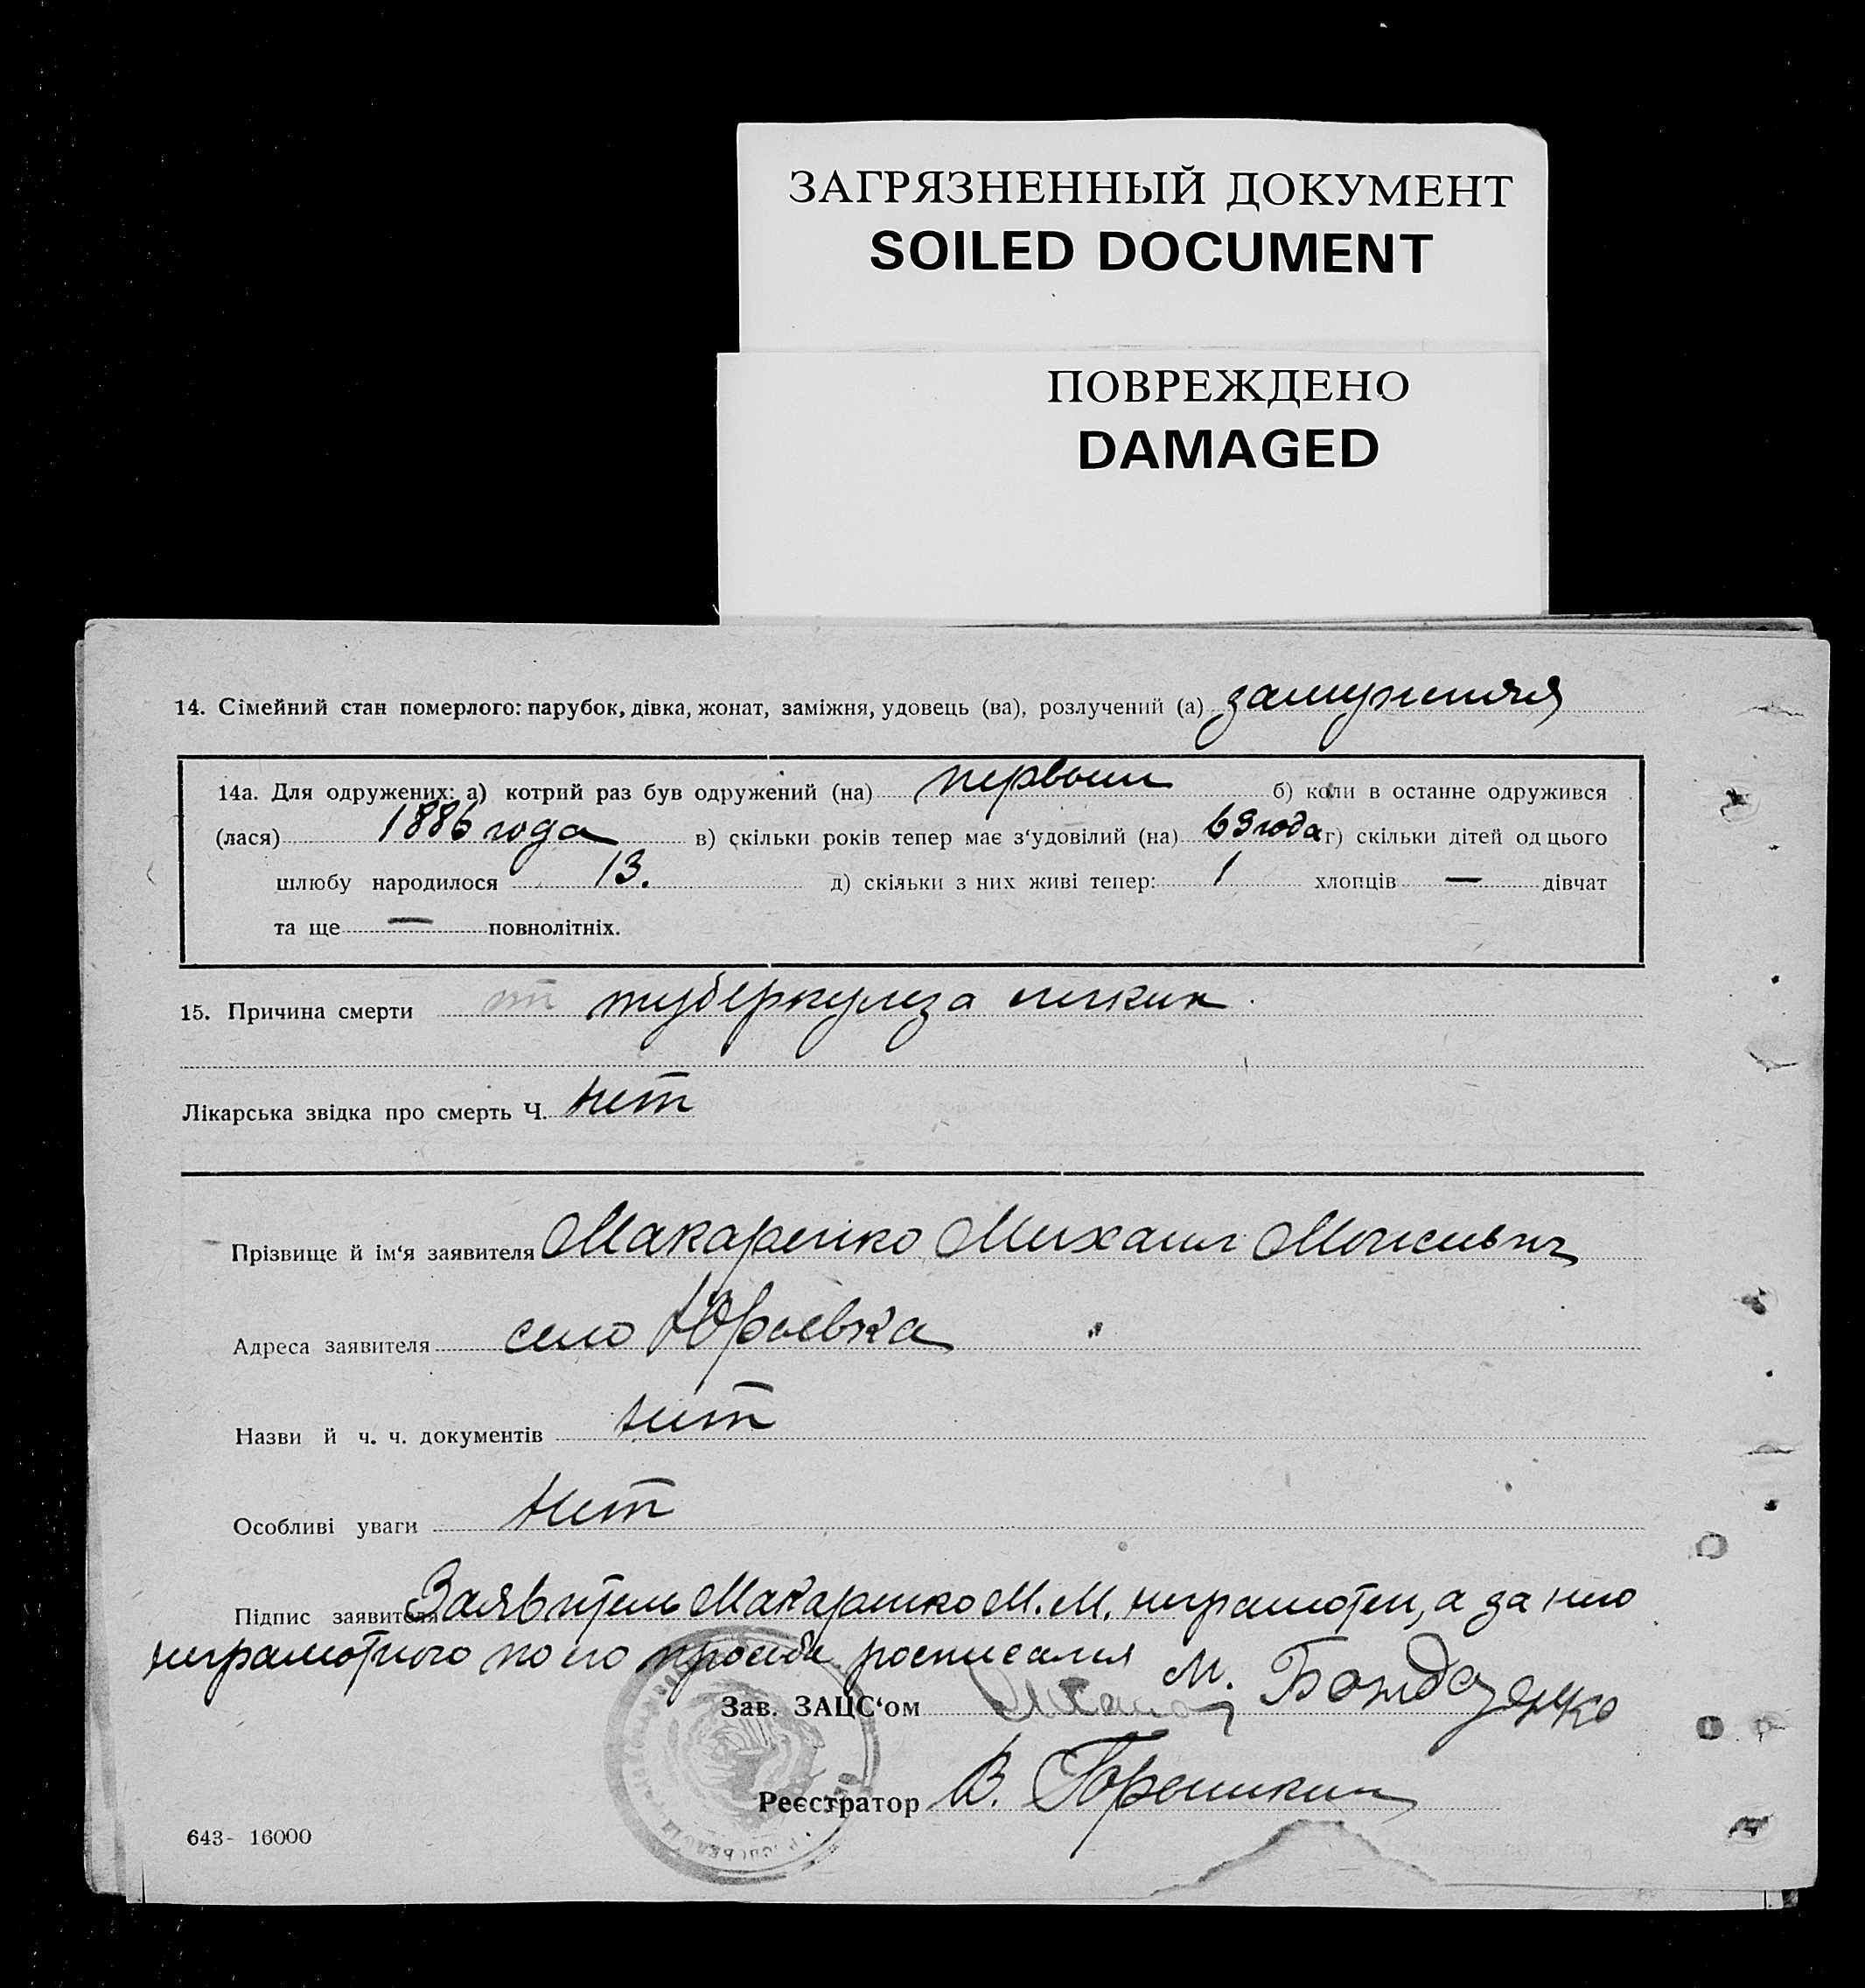 ЗАГРЯЗНЕННЫЙ ДОКУМЕНТ
SOILED DOCUMENT
ПОВРЕЖДЕНО
DAMAGED
14. Сімейний стан померлого: парубок, дівка, жонат, заміжня, удовець (ва), розлучений (а) замужняя
14а. Для одружених: а) котрий раз був одружений (на) первый б) коли в останне одружився
(лася) 1886 года в) скільки років тепер має з‘удовілий (на) 69 года г) скільки дітей од цього
шлюбу народилося 13. д) скільки з них живі тепер: 1 хлопців — дівчат
та ще — повнолітніх.
15. Причина смерти от туберкулеза легких.
Лікарська звідка про смерть Ч. нет
Прізвище й ім‘я заявителя Макаренко Михаил
Адреса заявителя село Юрьевка
Назви й ч. ч. документів нет
Особливі уваги нет
Підпис заявителя Заявитель Макаренко М. М. неграмотен, а за него
неграмотного по его просьбе росписался М.
Зав. ЗАЦС‘ом
Реєстратор В.
643- 16000